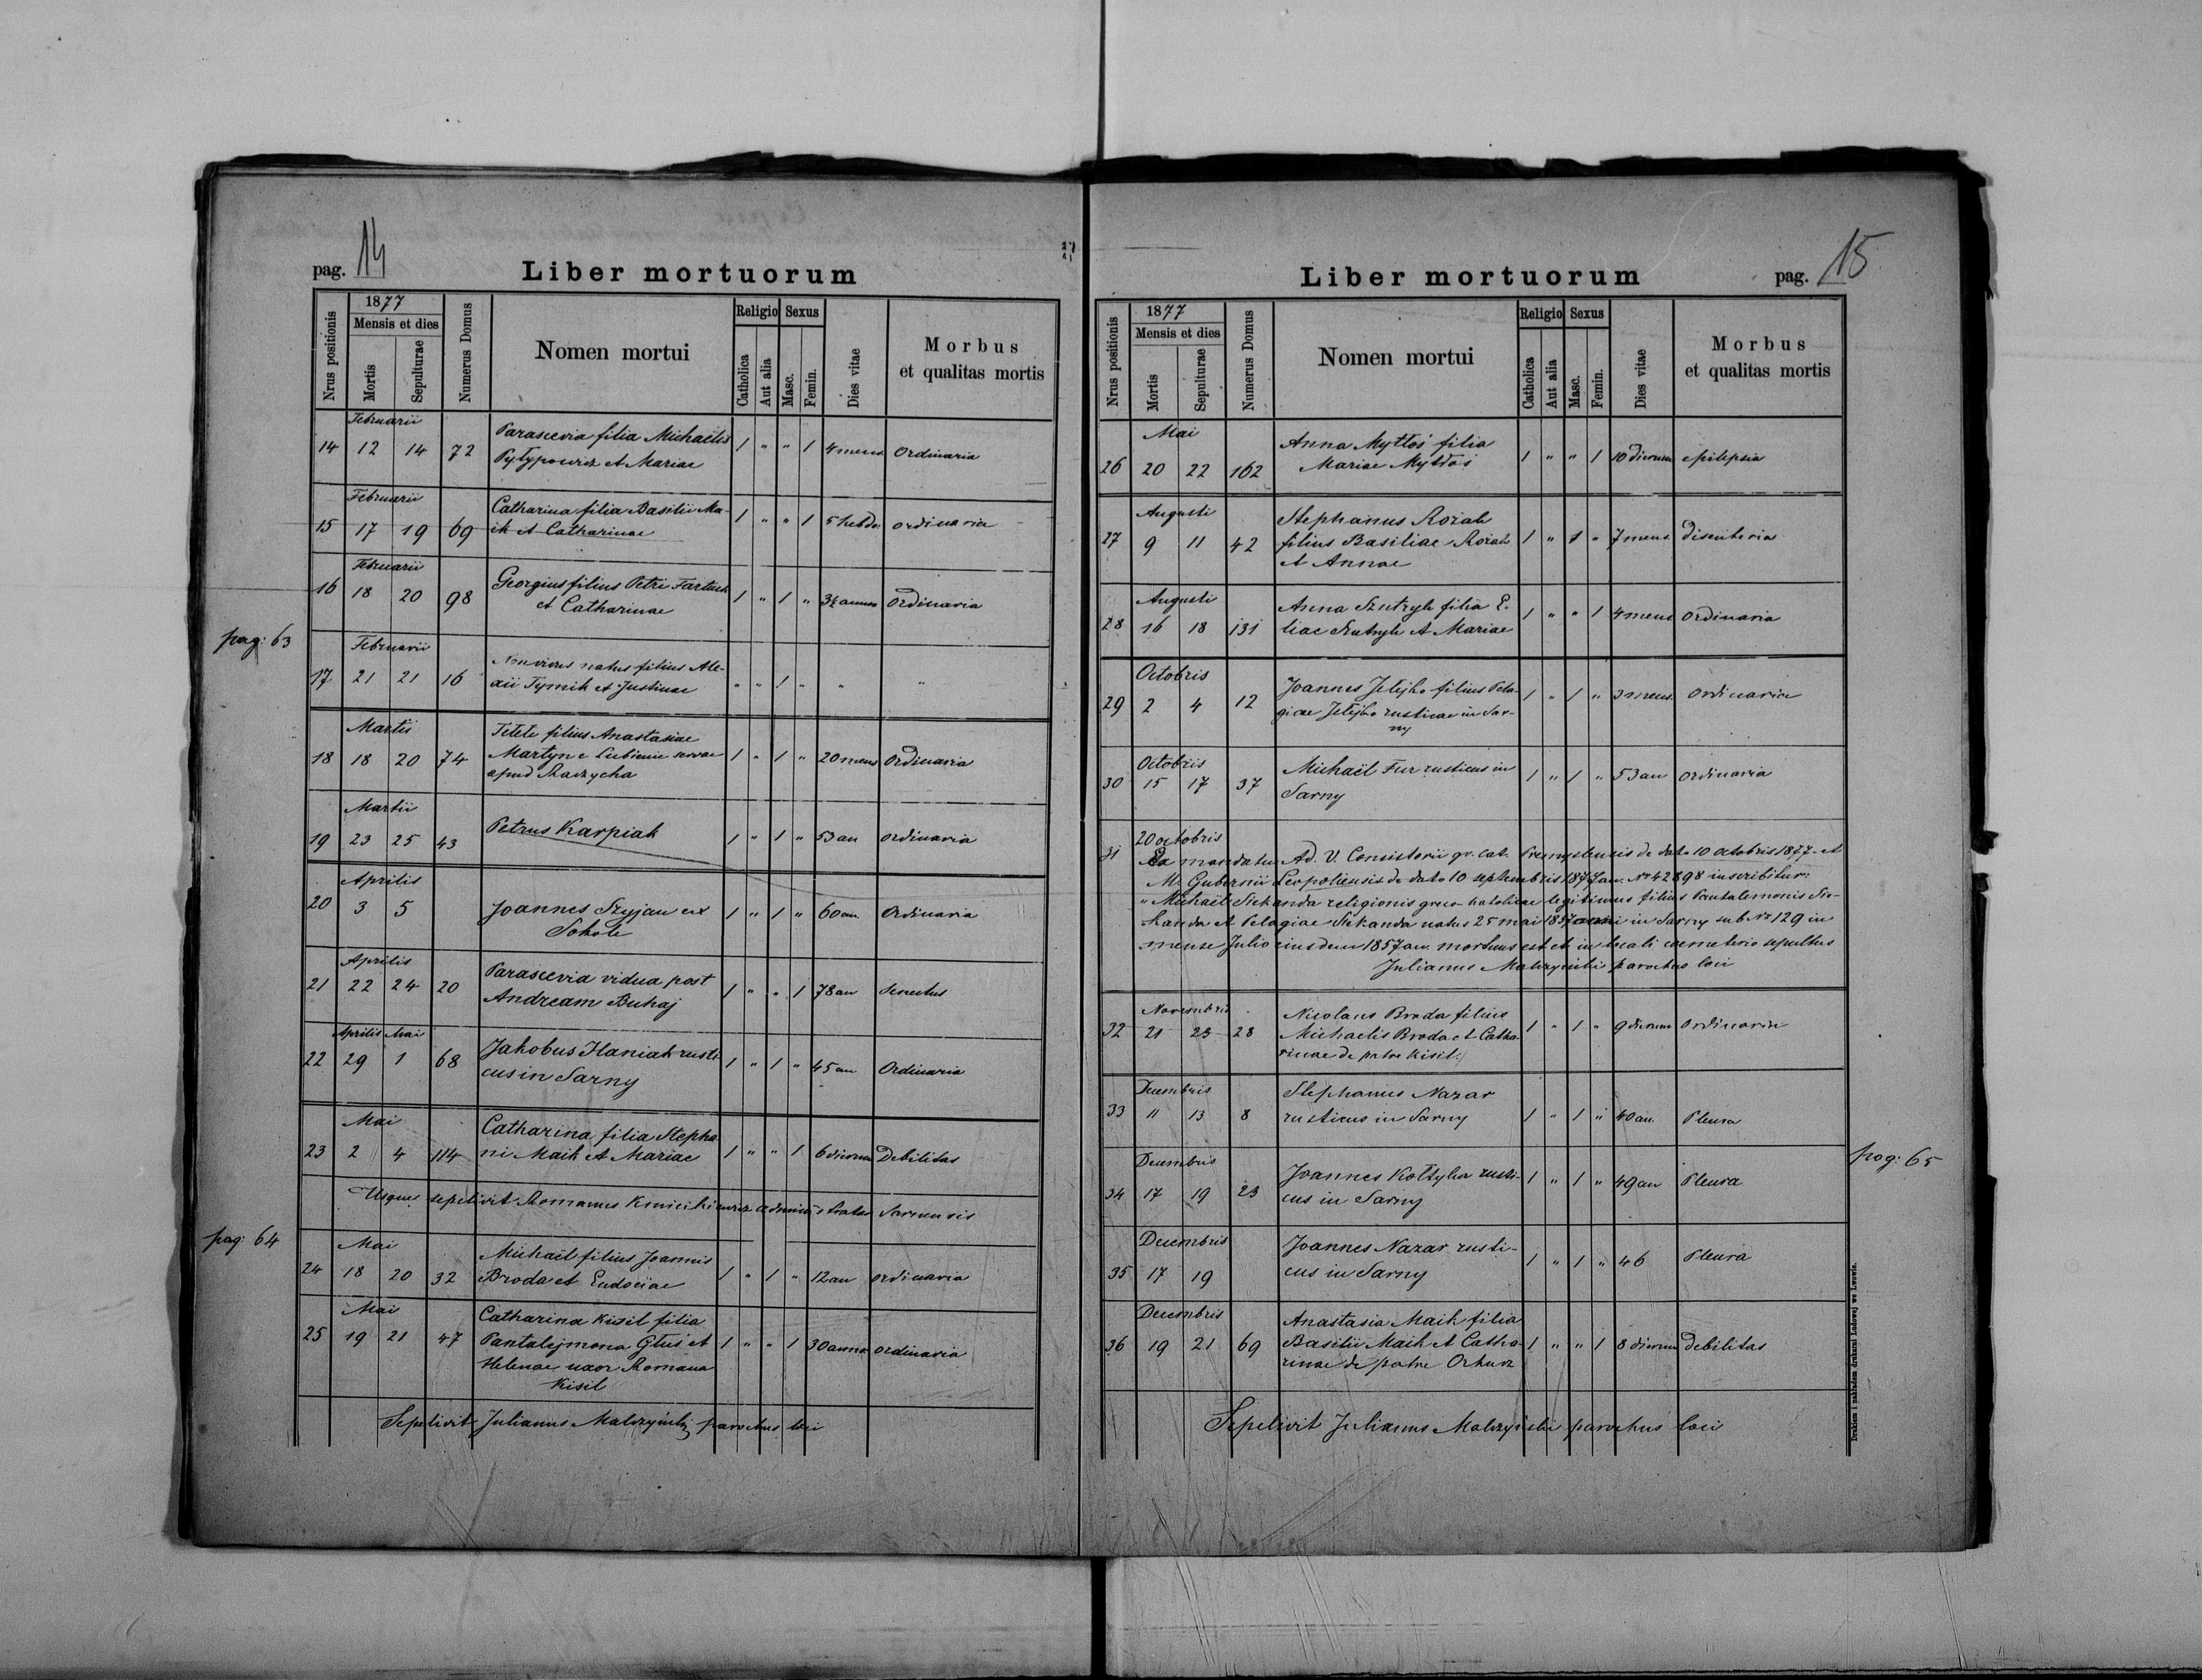 pag. 14
Liber mortuorum
Nrus positionis
1877
Mensis et dies
Mortis
Sepulturae
Numerus Domus
Nomen mortui
Religio
Catholica
Aut alia
Sexus
Masc.
Femin.
Dies vitae
Morbus
et qualitas mortis
Februarii
14 12 14 72 Parascevia filia Michaëlis 1 " " 1 4 mens Ordinaria
Pyłypowicz et Mariae
Februarii
15 17 19 69 Catharina filia Basilii Ma- 1 " " 1 5 hebdo. ordinaria
ik et Catharinae
Februarii
16 18 20 98 Georgius filius Petri 1 " 1 " 3½ annor Ordinaria
et Catharinae
pag: 63
Februarii
17 21 21 16 Non vivus natus filius Ale- " " 1 " " "
xii Tymik et Justinae
Martii
18 18 20 74 filius Anastasiae 1 " 1 " 20 mens Ordinaria
Martyn e servae
apud
Martii
19 23 25 43 Petrus Karpiak 1 " 1 " 53 an ordinaria
Aprilis
20 3 5 Joannes Szyjan ex 1 " 1 " 60 an Ordinaria
Sokole
Aprilis
21 22 24 20 Parascevia vidua post 1 " " 1 78 an Senectus
Andream Buhaj
Aprilis Mai
22 29 1 68 Jakobus Haniak rusti 1 " 1 " 45 an Ordinaria
cus in Sarny
Mai
23 2 4 114 Catharina filia Stepha 1 " " 1 6 dierum Debilitas
ni Maik et Mariae
Usque sepelivit Romanus Kmicikiewicz administrator Sarnensis
pag: 64
Mai
24 18 20 32 Michaël filius Joannis 1 " 1 " 12 an ordinaria
Broda et Eudociae
Mai
25 19 21 47 Catharina Kisil filia 1 " " 1 30 annor ordinaria
Pantalejmona et
Helenae uxor Romana
Kisil
Sepelivit Julianus Malczyński parochus loci
Liber mortuorum
pag. 15
Nrus positionis
1877
Mensis et dies
Mortis
Sepulturae
Numerus Domus
Nomen mortui
Religio
Catholica
Aut alia
Sexus
Masc.
Femin.
Dies vitae
Morbus
et qualitas mortis
Mai
26 20 22 162 Anna Myttoś filia 1 " " 1 10 dierum epilepsia
Mariae Myttoś
Augusti
27 9 11 42 Stephanus Rożak 1 " 1 " 7 mens. disenteria
filius Basiliae Rożak
et Annae
Augusti
28 16 18 131 Anna Szutryk filia E- 1 " " 1 4 mens Ordinaria
liae Szutryk et Mariae
Octobris
29 2 4 12 Joannes Jelejko filius Pela- 1 " 1 " 3 mens. Ordinaria
giae Jelejko rusticae in Sar-
ny
Octobris
30 15 17 37 Michaël Fur rusticus in 1 " 1 " 53 an ordinaria
Sarny
31 20 octobris
Ex mandatu Ad. V. Consistorii gr. cat. Premysliensis de dato 10 octobris 1877 et
M. Gubernii Leopoliensis de dato 10 septembris 1877 an. No 42898 inscribitur:
" Michaël Siekanda religionis greco katolicae legitimus filius Pantalemonis Sie-
kanda et Pelagiae Siekanda natus 25 mai 1857 anni in Sarny sub No 129 in
mense Julio eiusdem 1857 an. mortuus est et in locali cemeterio sepultus
Julianus Malczyński parochus loci
Novembris
32 21 23 28 Nicolaus Broda filius 1 " 1 " 9 dierum Ordinaria
Michaelis Broda et Catha-
rinae de patre Kisil
Decembris
33 11 13 8 Stephanus Nazar 1 " 1 " 40 an. Pleura
rusticus in Sarny
Decembris
34 17 19 23 Joannes Kołtyka rusti- 1 " 1 " 49 an Pleura
cus in Sarny
pag: 65
Decembris
35 17 19 Joannes Nazar rusti- 1 " 1 " 46 Pleura
cus in Sarny
Decembris
36 19 21 69 Anastasia Maik filia 1 " " 1 8 dierum debilitas
Basilii Maik et Catha-
rinae de patre
Sepelivit Julianus Malczyński parochus loci
Drukiem i nakładem drukarni Ludowej we Lwowie.